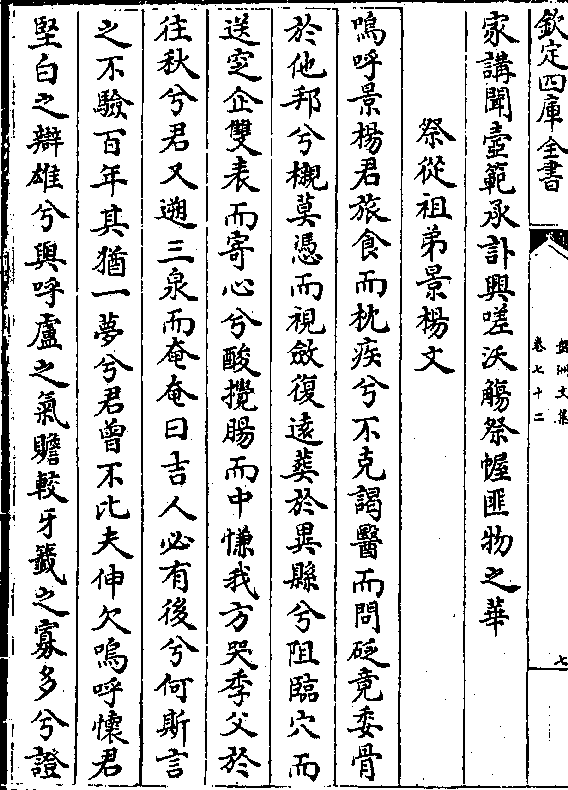 欽定四庫全書
盤洲文集
卷七十二
七
家講聞壼範承訃興嗟沃觴祭幄匪物之華
祭從祖弟景楊文
嗚呼景楊君旅食而枕疾兮不克謁醫而問砭竟委骨
於他邦兮櫬莫憑而視斂復遠葬於異縣兮阻臨穴而
送窆企雙表而寄心兮酸攪腸而中慊我方哭季父於
往秋兮君又遡三泉而奄奄曰吉人必有後兮何斯言
之不驗百年其猶一夢兮君曾不比夫伸欠嗚呼懷君
堅白之辯雄兮與呼盧之氣贍較牙籤之寡多兮證